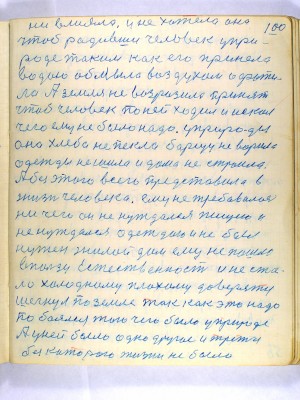 ни влияла, и не хотела она 100
чтоб родивши человек у при
роде таким как его приняла
водою обмывала воздухом
ло А земля не возразила принять
чтоб человек по ней ходил и искал
чего ему не было надо. у природы
она хлеба не пекла барщу не варила
одежды не шила и дома не строила.
А без этого всего представила в
жизнь человека. ему не требовалос
ни чего он не нуждался пищею и
не нуждался одеждою и не был
нужен жилой дом ему не
в пользу Естественность и не ста
ло холодному плохому доверяту
шагнул по земле так как это надо
побоялся того чего было у природе
А у ней было одно другое и третье
без которого жизни не было